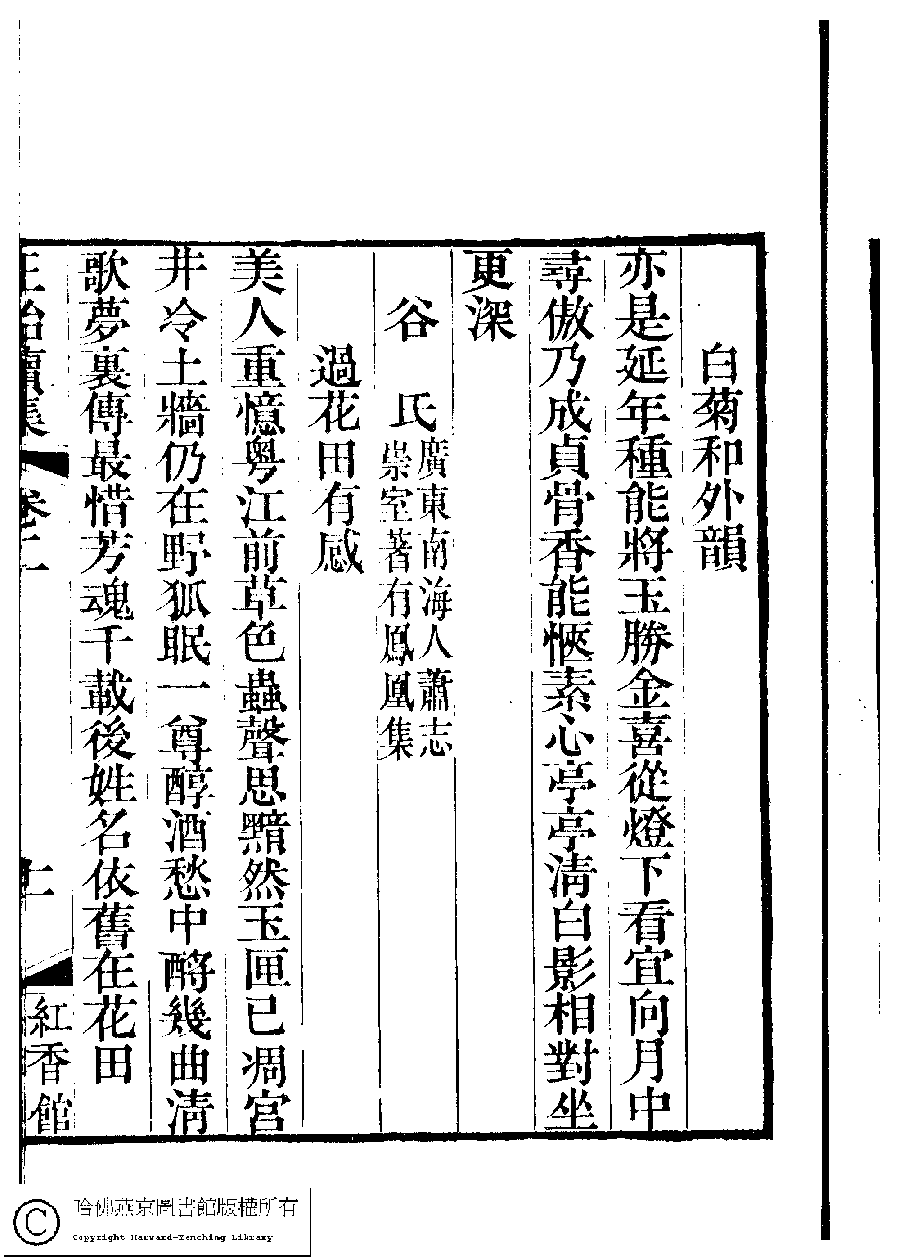 白菊和外韻
亦是延年種能將玉勝金喜從燈下看宜向月中
尋傲乃成貞骨香能愜素心亭亭淸白影相對坐
更深
谷　氏廣東南海人蕭志
崇室著有鳳凰集
過花田有感
美人重憶粵江前草色蟲聲思黯然玉匣已凋宮
井冷土牆仍在野狐眠一尊醇酒愁中酹幾曲淸
歌夢裏傳最惜芳魂千載後姓名依舊在花田
正始續集　卷二　紅香館
哈佛燕京圖書館版權所有
Copyright Harvard-Yenching Library